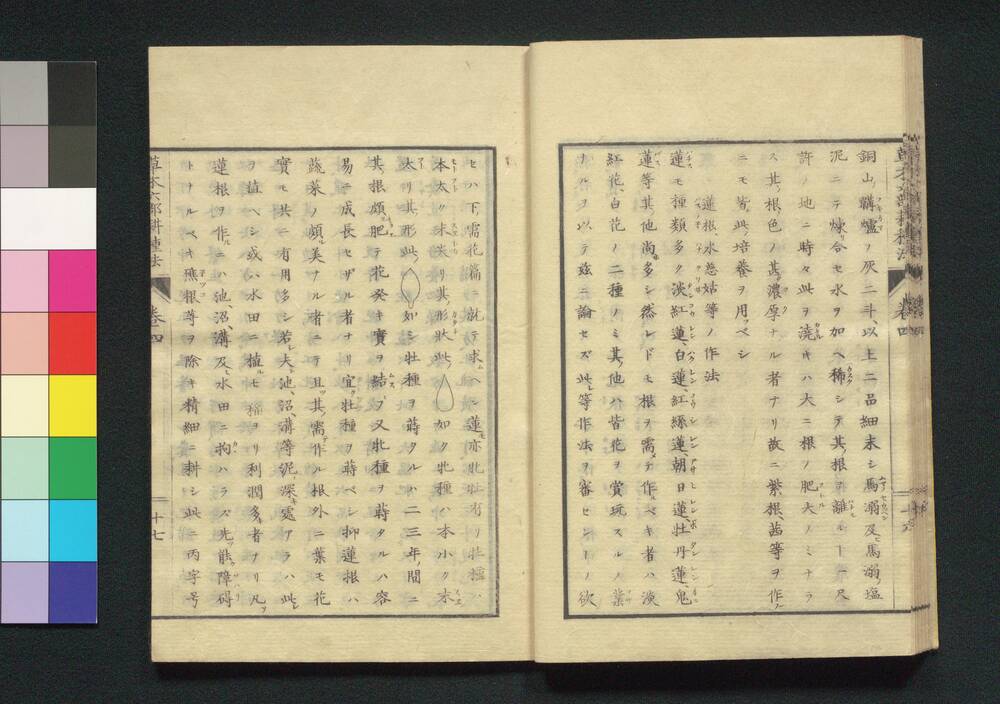 銅山ノ鞴爐ノ灰二斗以上二品細末シ馬溺及ヒ馬溺塩
泥ニテ煉合セ水ヲ加ヘ稀シテ其根ヲ離ルヿ一尺
許ノ地ニ時々此ヲ澆キハ大ニ根ノ肥大ノミナラ
ス其根色ノ甚濃厚ナル者ナリ故ニ紫根茜等ヲ作ル
ニモ皆此培養ヲ用フベシ
蓮根水慈姑等ノ作法
蓮モ種類多ク淡紅蓮白蓮紅絲蓮朝日蓮牡丹蓮鬼
蓮等其他尚多シ然レドモ根ヲ需テ作ベキ者ハ淡
紅花白花ノ二種ノミ其他ハ皆花ヲ賞玩スルノ業
ナルヲ以テ玆ニ論セズ此等作法ヲ審センㇳノ欲
草木六部耕種法 卷四
セハ下需花篇ニ就テ求ムヘシ蓮亦牝牡有リ牡種ハ
本太ク末尖リ其形狀此如ク牝種ハ本小ク末
太リ其形此如シ牡種ヲ蒔タルハ二三年ノ間ニ
其根頗肥テ花発キ實ヲ結フ又牝種ヲ蒔タルハ容
易ニ成長セザル者ナリ宜ク牡種ヲ蒔ベシ抑蓮根ハ
蔬菜ノ頗美ナル者ニシテ且其需作ル根外ニ葉モ花
實モ共ニ有用多シ若夫池沼溝等泥深キ處アラハ此レ
ヲ植ヘシ或ハ水田ニ植ルモ稲ヨリ利潤多キ者ナリ凡ソ
蓮根ヲ作ルニハ池沼溝及ヒ水田ニ拘ハラズ先ツ能障碍
トナルベキ蕉根等ヲ除キ精細ニ耕シ此ニ丙字号
草木六部耕種法 卷四 十七